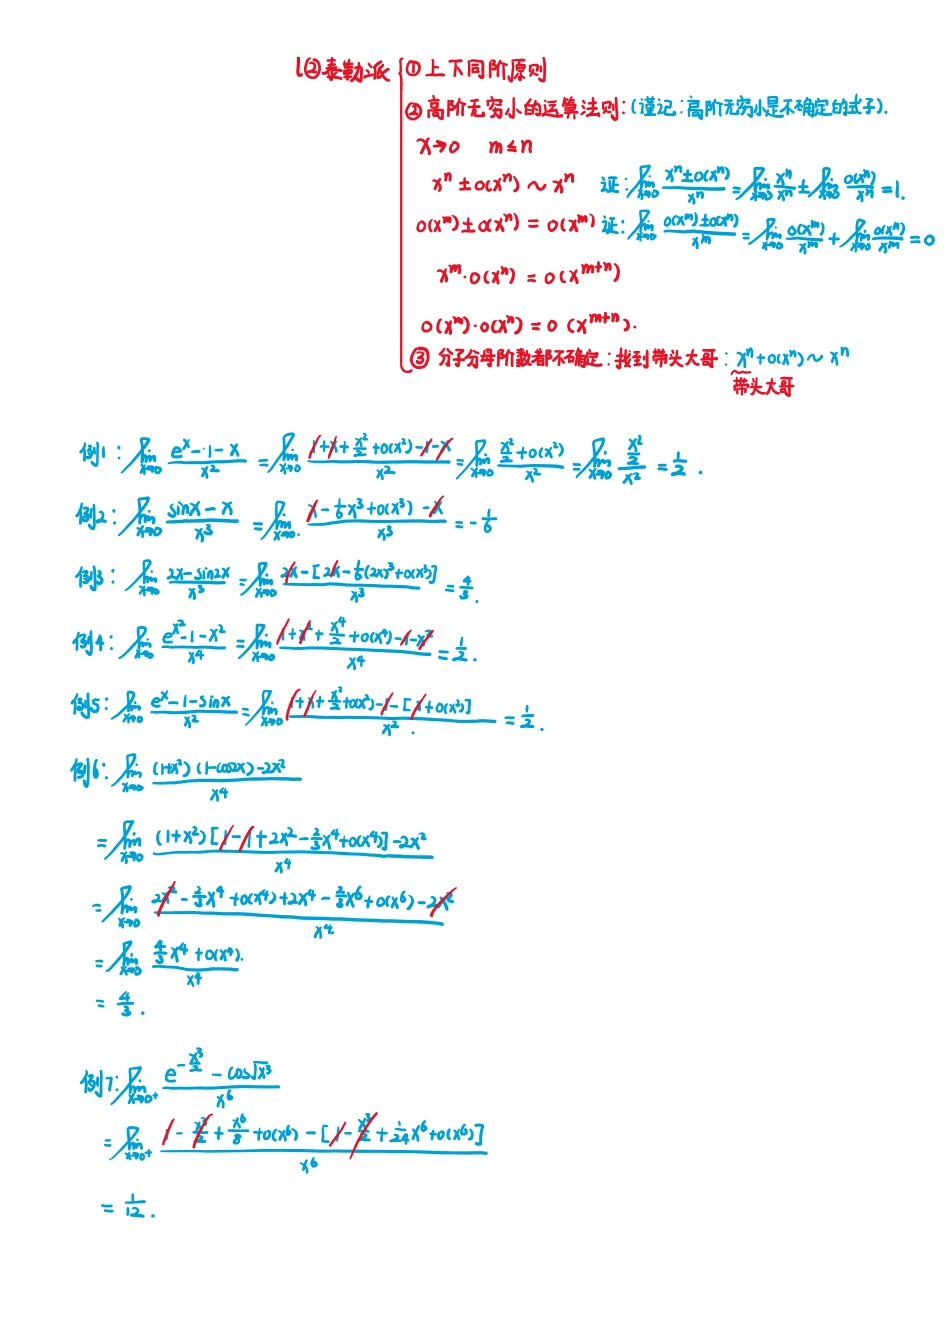 ②泰勒派 ①上下同阶原则
②高阶无穷小的运算法则:(谨记:高阶无穷小是不确定的式子).
x→0 m≤n
xⁿ ± o(xⁿ) ~ xⁿ 证: lim_{x→0} (xⁿ±o(xⁿ))/xⁿ = lim_{x→0} xⁿ/xⁿ ± lim_{x→0} o(xⁿ)/xⁿ = 1.
o(x^m) ± o(xⁿ) = o(x^m) 证: lim_{x→0} (o(x^m)±o(xⁿ))/x^m = lim_{x→0} o(x^m)/x^m + lim_{x→0} o(xⁿ)/x^m = 0
x^m·o(xⁿ) = o(x^{m+n})
o(x^m)·o(xⁿ) = o(x^{m+n}).
③ 分子分母阶数都不确定:找到带头大哥: xⁿ+o(xⁿ) ~ xⁿ
带头大哥
例1: lim_{x→0} (e^x-1-x)/x² = lim_{x→0} (1+x+x²/2+o(x²)-1-x)/x² = lim_{x→0} (x²/2+o(x²))/x² = lim_{x→0} (x²/2)/x² = 1/2.
例2: lim_{x→0} (sinx-x)/x³ = lim_{x→0} (x-1/6x³+o(x³)-x)/x³ = -1/6
例3: lim_{x→0} (2x-sin2x)/x³ = lim_{x→0} (2x-[2x-1/6(2x)³+o(x³)])/x³ = 4/3.
例4: lim_{x→0} (e^{x²}-1-x²)/x⁴ = lim_{x→0} (1+x²+x⁴/2+o(x⁴)-1-x²)/x⁴ = 1/2.
例5: lim_{x→0} (e^x-1-sinx)/x² = lim_{x→0} (1+x+x²/2+o(x²)-1-[x+o(x²)])/x² = 1/2.
例6: lim_{x→0} ((1+x²)(1-cos2x)-2x²)/x⁴
= lim_{x→0} ((1+x²)[1-1+2x²-2/3x⁴+o(x⁴)]-2x²)/x⁴
= lim_{x→0} (2x²-2/3x⁴+o(x⁴)+2x⁴-2/3x⁶+o(x⁶)-2x²)/x⁴
= lim_{x→0} (4/3x⁴+o(x⁴))/x⁴
= 4/3.
例7: lim_{x→0⁺} (e^{-x³/2}-cos√x³)/x⁶
= lim_{x→0⁺} (1-x³/2+x⁶/8+o(x⁶)-[1-x³/2+1/24x⁶+o(x⁶)])/x⁶
= 1/12.